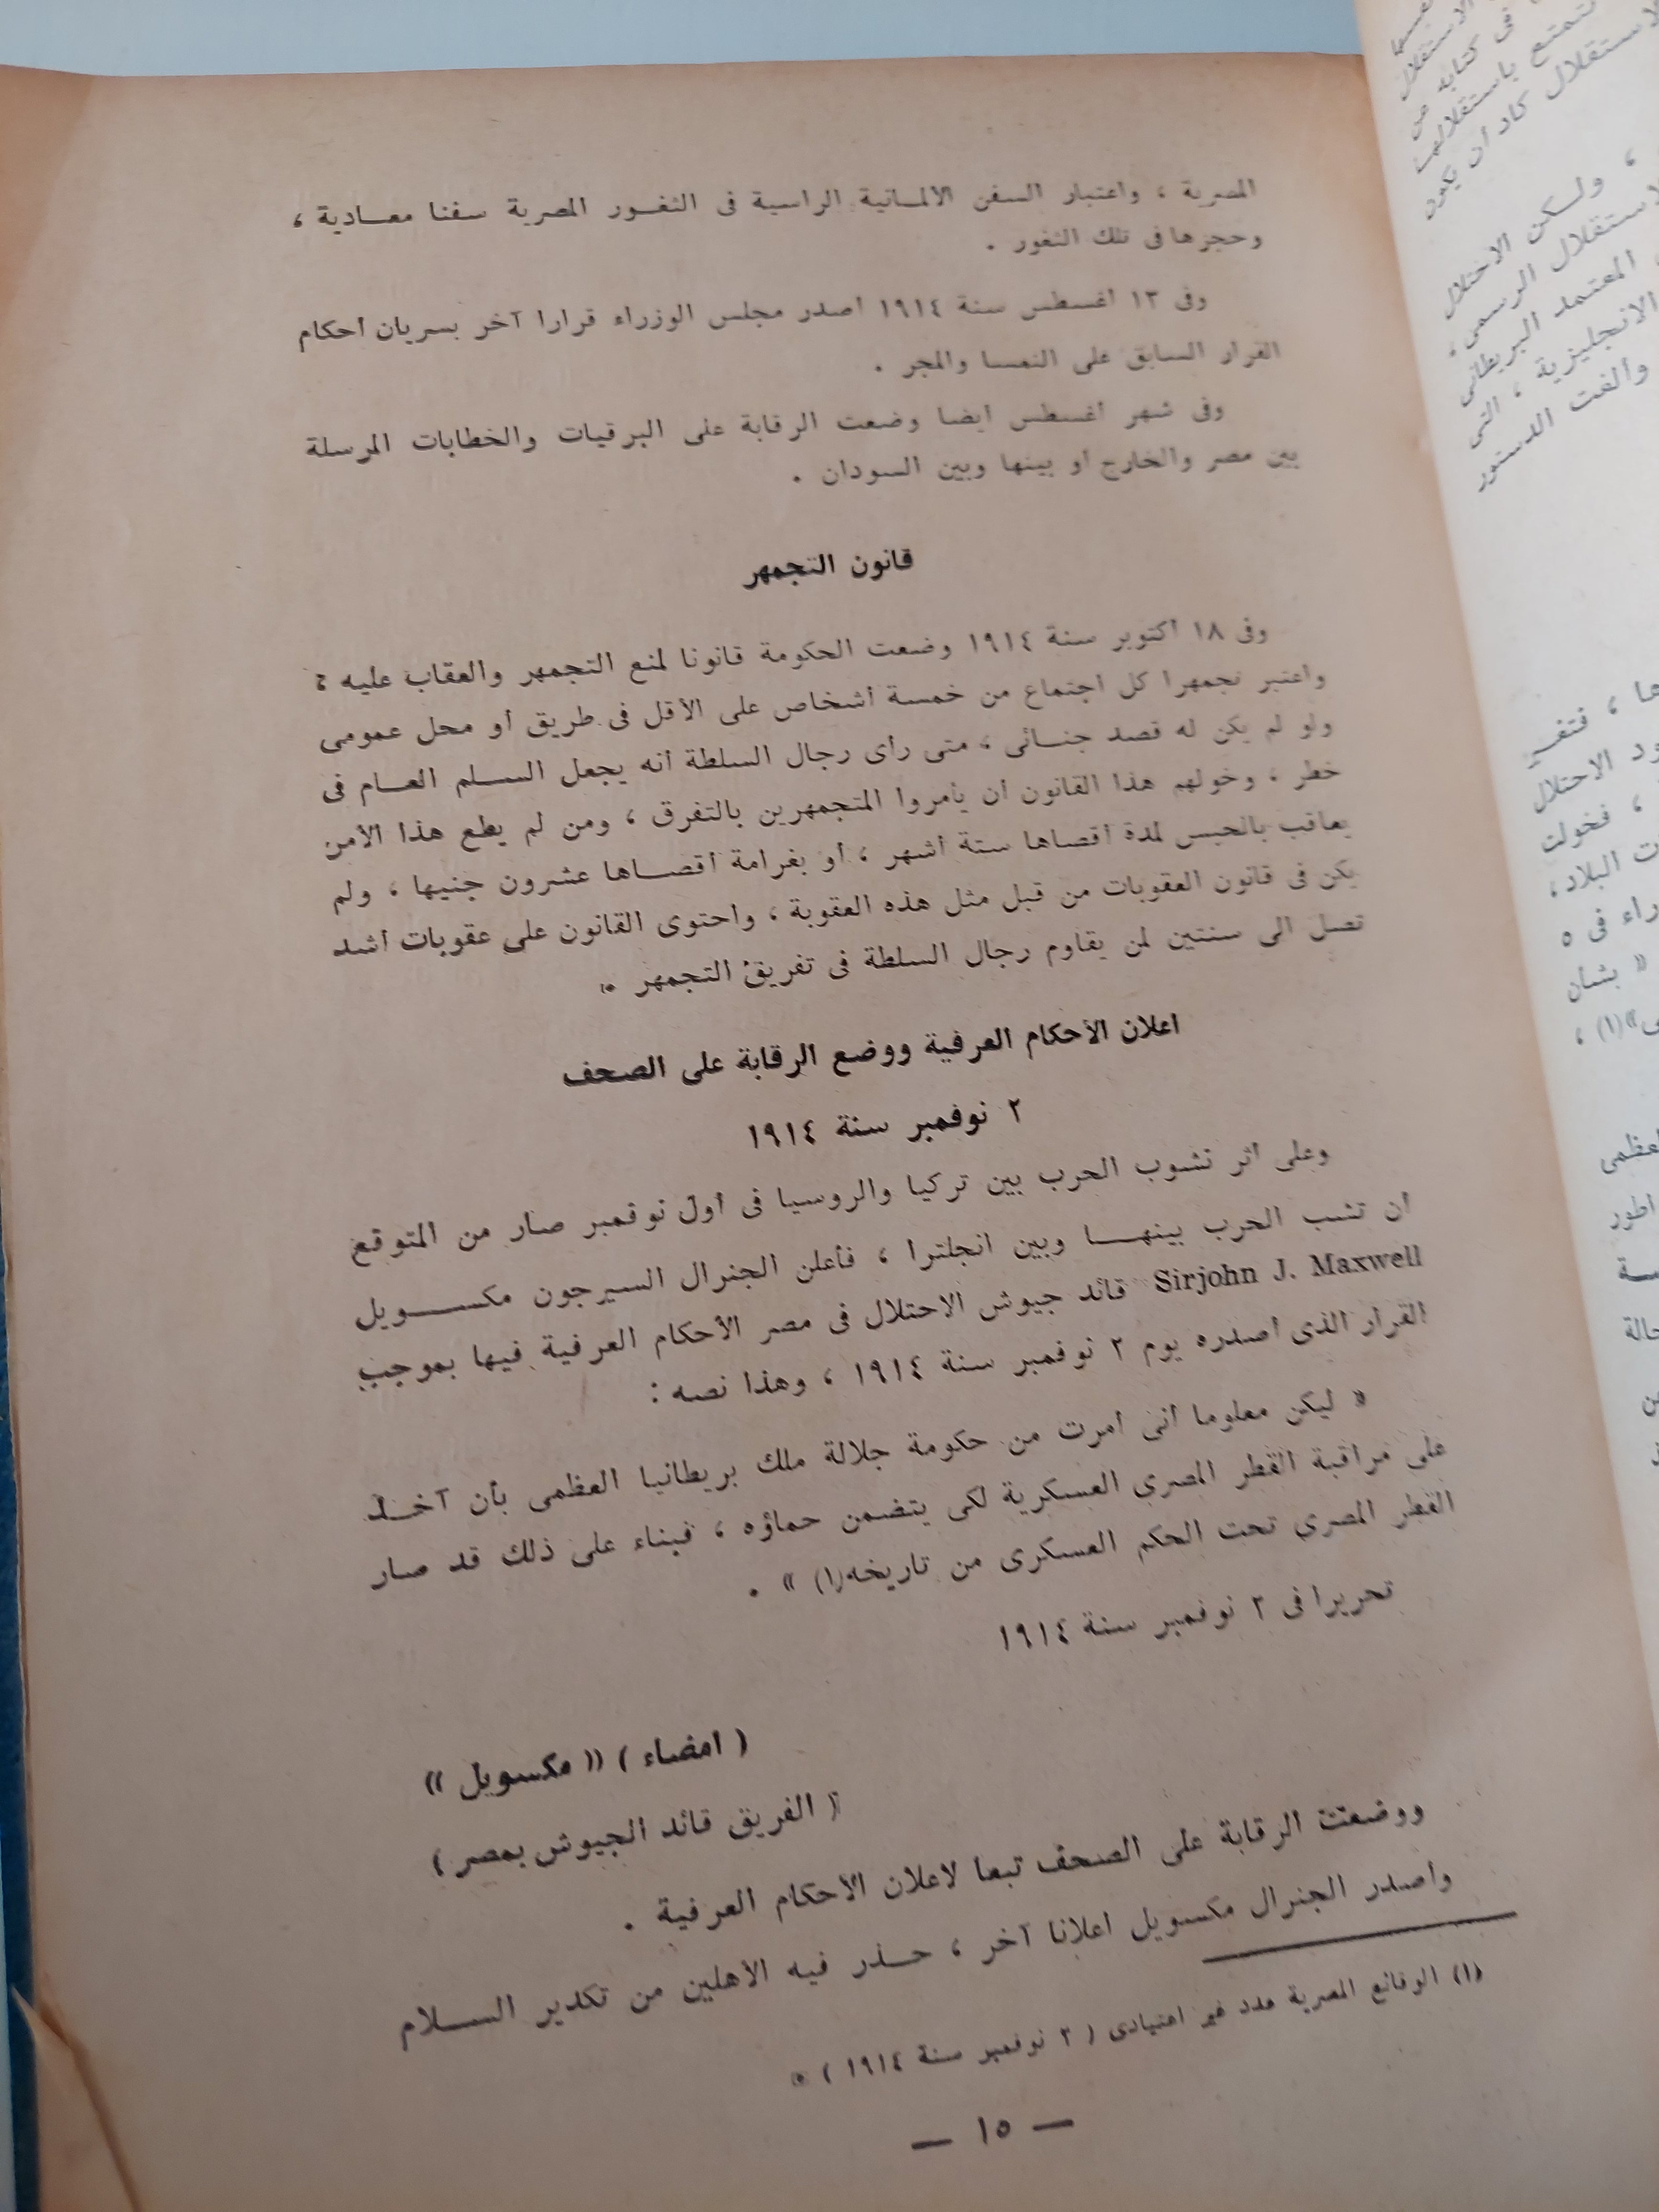 المصرية ، واعتبار السفن الالمـانية الراسية فى الثغـور المصرية سفنا معـادية ،
وحجزها فى تلك الثغور .
وفى ١٣ اغسطس سنة ١٩١٤ اصدر مجلس الوزراء قرارا آخر بسريان أحكام
القرار السابق على النمسا والمجر .
وفى شهر اغسطس ايضا وضعت الرقابة على البرقيات والخطابات المرسلة
بين مصر والخارج او بينها وبين السودان .
قانون التجمهر
وفى ١٨ اكتوبر سنة ١٩١٤ وضعت الحكومة قانونا لمنع التجمهر والعقاب عليه ؛
واعتبر تجمهرا كل اجتماع من خمسة أشخاص على الأقل فى طريق أو محل عمومى
ولو لم يكن له قصد جنـائى ، متى رأى رجال السلطة أنه يجعل السـلم العـام فى
خطر ، وخولهم هذا القانون أن يأمروا المتجمهرين بالتفرق ، ومن لم يطع هذا الأمر
يعاقب بالحبس لمدة أقصاها ستة أشهر ، أو بغرامة أقصـاها عشرون جنيها ، ولم
يكن فى قانون العقوبات من قبل مثل هذه العقوبة ، واحتوى القانون على عقوبات أشد
تصل الى سنتين لمن يقاوم رجال السلطة فى تفريق التجمهر .
اعلان الأحكام العرفية ووضع الرقابة على الصحف
٢ نوفمبر سنة ١٩١٤
وعلى اثر نشوب الحرب بين تركيا والروسيا فى أول نوفمبر صار من المتوقع
ان تشب الحرب بينهـا وبين انجلترا ، فأعلن الجنرال السيرجون مكسـويل
Sirjohn J. Maxwell قائد جيوش الاحتلال فى مصر الأحكام العرفية فيها بموجب
القرار الذى أصدره يوم ٢ نوفمبر سنة ١٩١٤ ، وهذا نصه :
« ليكن معلوما أنى أمرت من حكومة جلالة ملك بريطانيا العظمى بأن آخـذ
على مراقبة القطر المصرى العسكرية لكى يتضمن حماؤه ، فبناء على ذلك قد صار
القطر المصرى تحت الحكم العسكرى من تاريخه(١) » .
تحريرا فى ٢ نوفمبر سنة ١٩١٤
( امضاء ) « مكسويل »
( الفريق قائد الجيوش بمصر )
ووضعت الرقابة على الصحف تبعا لاعلان الأحكام العرفية .
واصدر الجنرال مكسويل اعلانا آخر ، حـذر فيه الأهلين من تكدير السـلام
(١) الوقائع المصرية عدد غير اعتيادى ( ٢ نوفمبر سنة ١٩١٤ ) .
— ١٥ —
فى كتابه عن
تتمتع باستقلالهـا
ستقلال كاد أن يكون
، ولـكن الاحتلال
لاستقلال الرسمى ،
المعتمد البريطانى
الانجليزية ، التى
والغت الدستور
ها ، فتغير
ود الاحتلال
، فخولت
ت البلاد ،
راء فى ٥
« بشأن